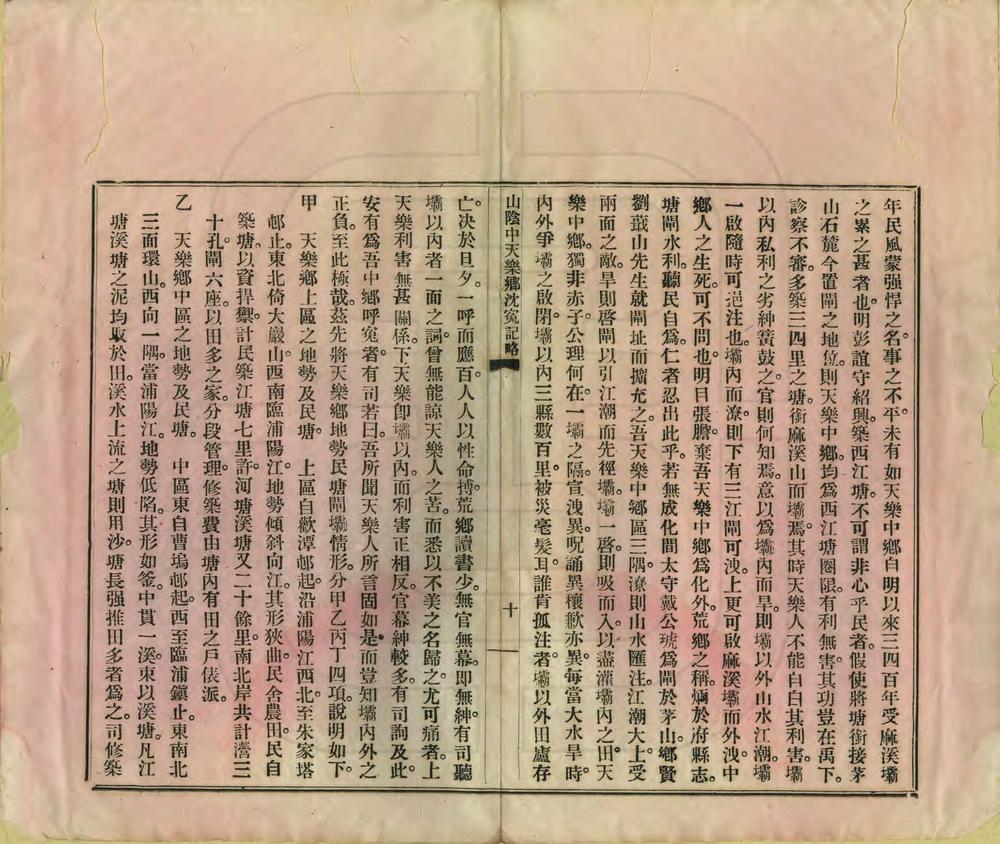 年民風蒙强悍之名。事之不平。未有如天樂中鄉自明以來三四百年受麻溪壩
之累之甚者也。明彭誼守紹興。築西江塘。不可謂非心乎民者。假使將塘銜接茅
山石麓今置閘之地位。則天樂中鄉。均爲西江塘圈限。有利無害。其功豈在禹下。
診察不審。多築三四里之塘。銜麻溪山而壩焉。其時天樂人不能自白其利害。壩
以內私利之劣紳簧鼓之。官則何知焉。意以爲壩內而旱。則壩以外山水江潮。壩
一啟隨時可挹注也。壩內而潦。則下有三江閘可洩。上更可啟麻溪壩而外洩。中
鄉人之生死。可不問也。明目張膽。棄吾天樂中鄉爲化外。荒鄉之稱。炳於府縣志。
塘閘水利。聽民自爲。仁者忍出此乎。若無成化間太守戴公琥爲閘於茅山。鄉賢
劉蕺山先生就閘址而擴充之。吾天樂中鄉區三隅。潦則山水匯注。江潮大上。受
兩面之敵。旱則啓閘以引江潮而先徑壩。壩一啓則吸而入。以盡灌壩內之田。天
樂中鄉。獨非赤子。公理何在。一壩之隔。宣洩異。呪誦異。禳歉亦異。每當大水旱時。
內外爭壩之啟閉。壩以內三縣數百里。被災毫髮耳。誰肯孤注者。壩以外田廬存
山陰中天樂鄉沈寃記略
十
亡。決於旦夕。一呼而應。百人人以性命搏。荒鄉讀書少。無官無幕。即無紳。有司聽
壩以內者一面之詞。曾無能諒天樂人之苦。而悉以不美之名歸之。尤可痛者。上
天樂利害無甚關係。下天樂卽壩以內。而利害正相反。官幕紳較多。有司詢及此。
安有爲吾中鄉呼寃者。有司若曰吾所聞天樂人所言固如是。而豈知壩內外之
正負。至此極哉。茲先將天樂鄉地勢民塘閘壩情形。分甲乙丙丁四項。說明如下。
甲 天樂鄉上區之地勢及民塘。 上區自歡潭邨起。沿浦陽江西北至朱家塔
邨止。東北倚大巖山。西南臨浦陽江。地勢傾斜向江。其形狹曲。民舍農田。民自
築塘。以資捍禦。計民築江塘七里許。河塘溪塘又二十餘里。南北岸共計霪三
十孔。閘六座。以田多之家。分段管理。修築費由塘內有田之戶俵派。
乙 天樂鄉中區之地勢及民塘。 中區東自曹塢邨起。西至臨浦鎭止。東南北
三面環山。西向一隅。當浦陽江。地勢低陷。其形如釜。中貫一溪。束以溪塘。凡江
塘溪塘之泥。均取於田。溪水上流之塘則用沙。塘長强推田多者爲之。司修築